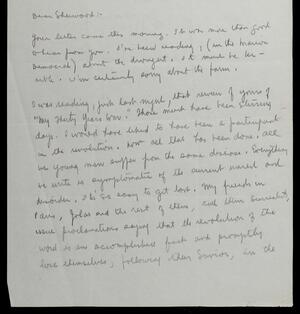 Dear Sherwood:-
Your letter came this morning. It was more than good
to hear from you. I've been reading, (in the Marion
Democrat) about the drought. It must be ter-
rible. I'm certainly sorry about the farm.
I was reading, just last night, that review of yours of
"My Thirty Years War." Those must have been stirring
days. I would have liked to have been a participant
in the revolution. Now all that has been done. All
we young men suffer from the same disease. Everything
we write is symptomatic of the current unrest and
disorder. It's so easy to get lost. My friends in
Paris, Jolas and the rest of them, call them surrealist,
issue proclamations saying that the revolution of the
word is an accomplished fact and promptly
lose themselves, following their Saviors, in the